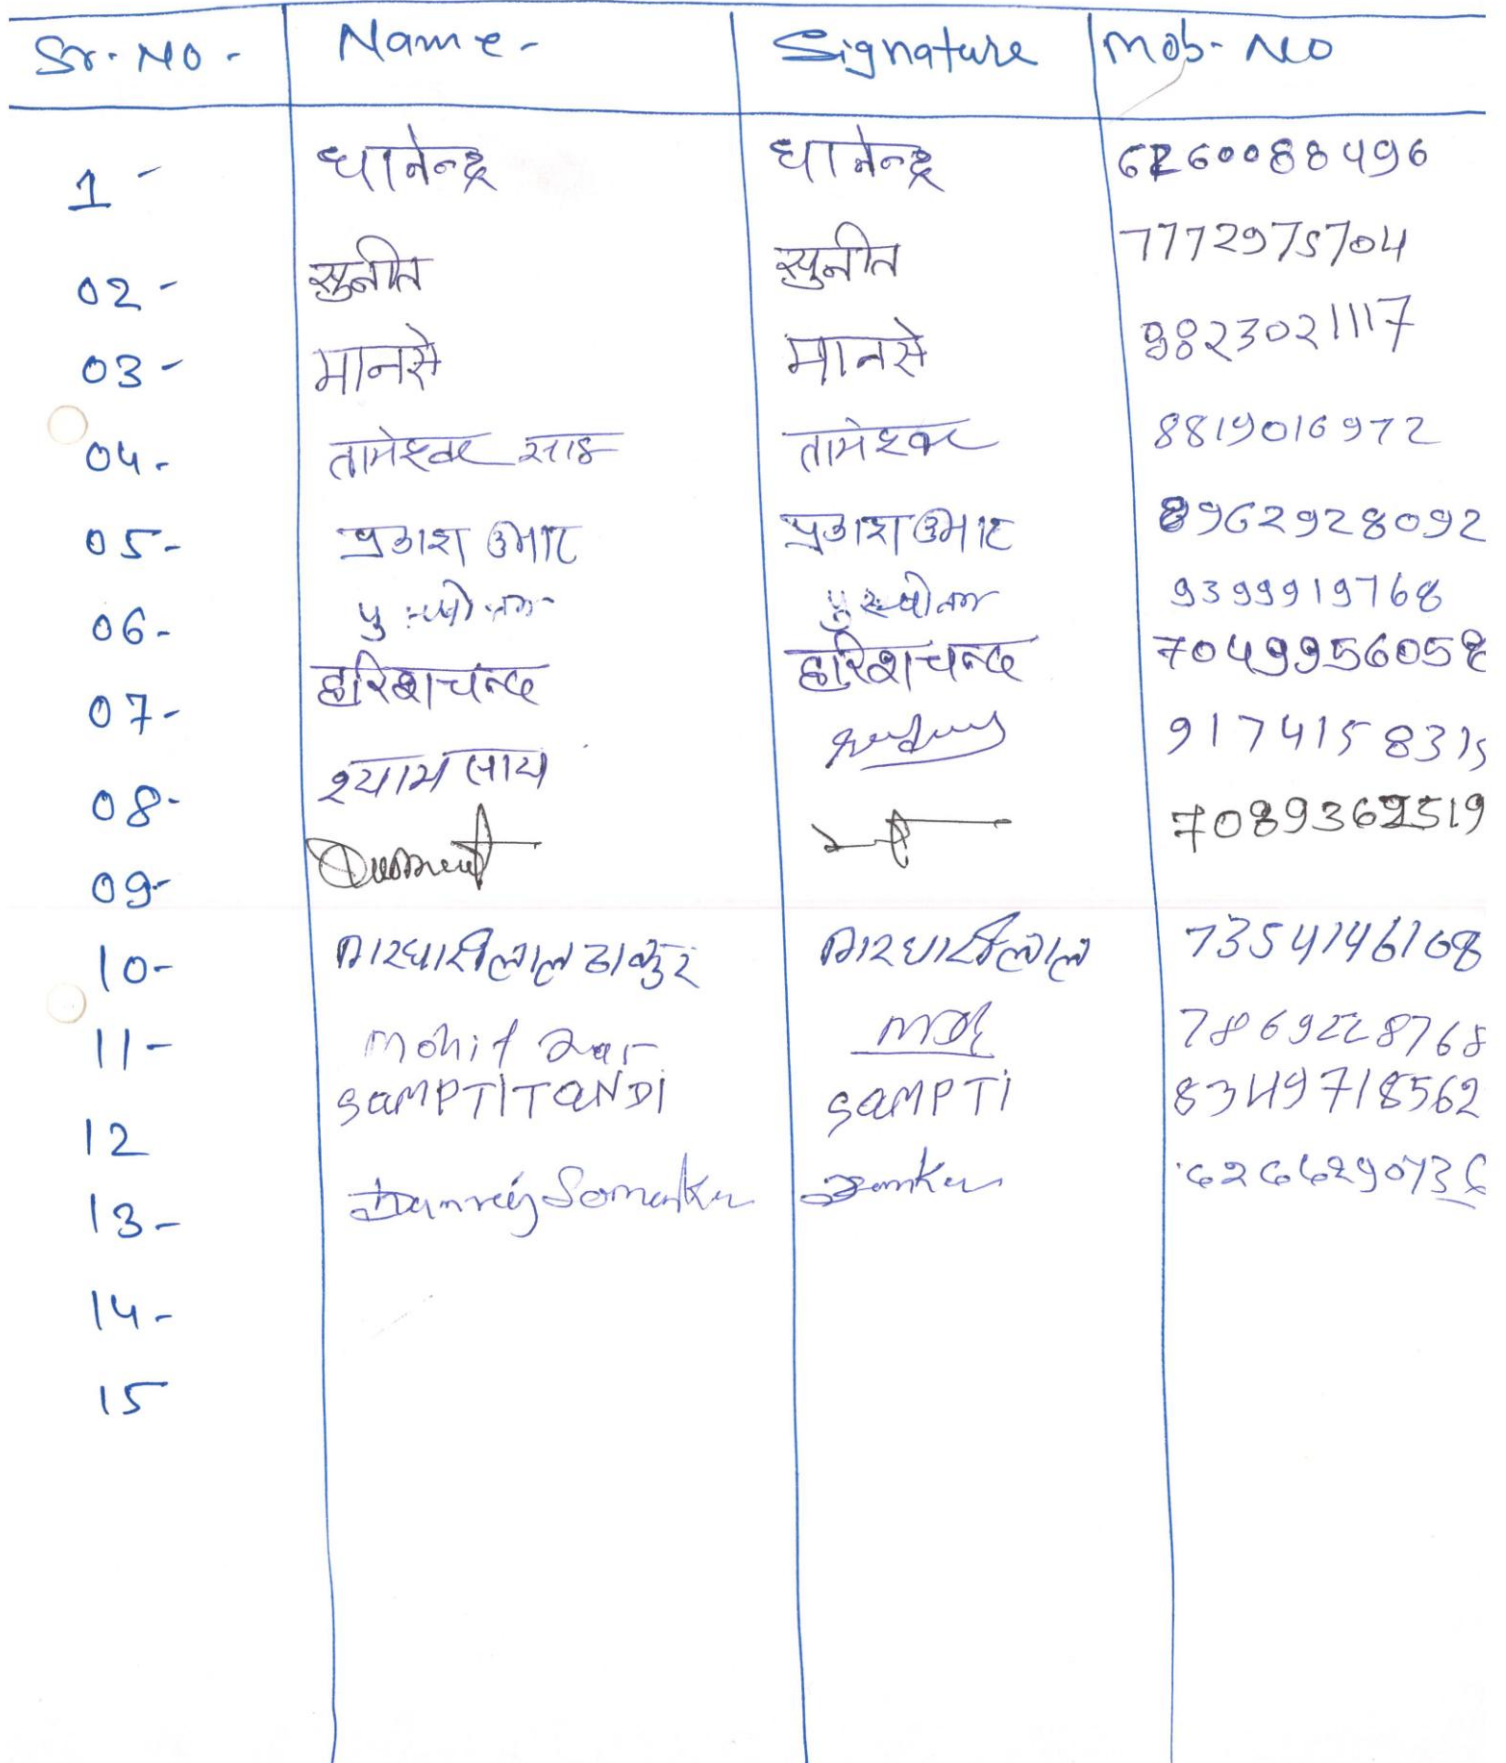 Sr. No - Name - Signature Mob- No
1 - धानेन्द्र धानेन्द्र 6260088496
02 - सुनीत सुनीत 7772975704
03 - मानसे मानसे 9823021117
04 - तामेश्वर साहू तामेश्वर 8819016972
05 - प्रकाश कुमार प्रकाश कुमार 8962928092
06 - पुरुषोतम पुरुषोतम 9399919768
07 - हरिशचन्द हरिशचन्द 7049956058
08 - श्याम लाय 9174158315
09 - 7089362519
10 - ठाकुर 7354146108
11 - Mohit 7869228768
12 SAMPTI TANDI SAMPTI 8349718562
13 -
14 -
15